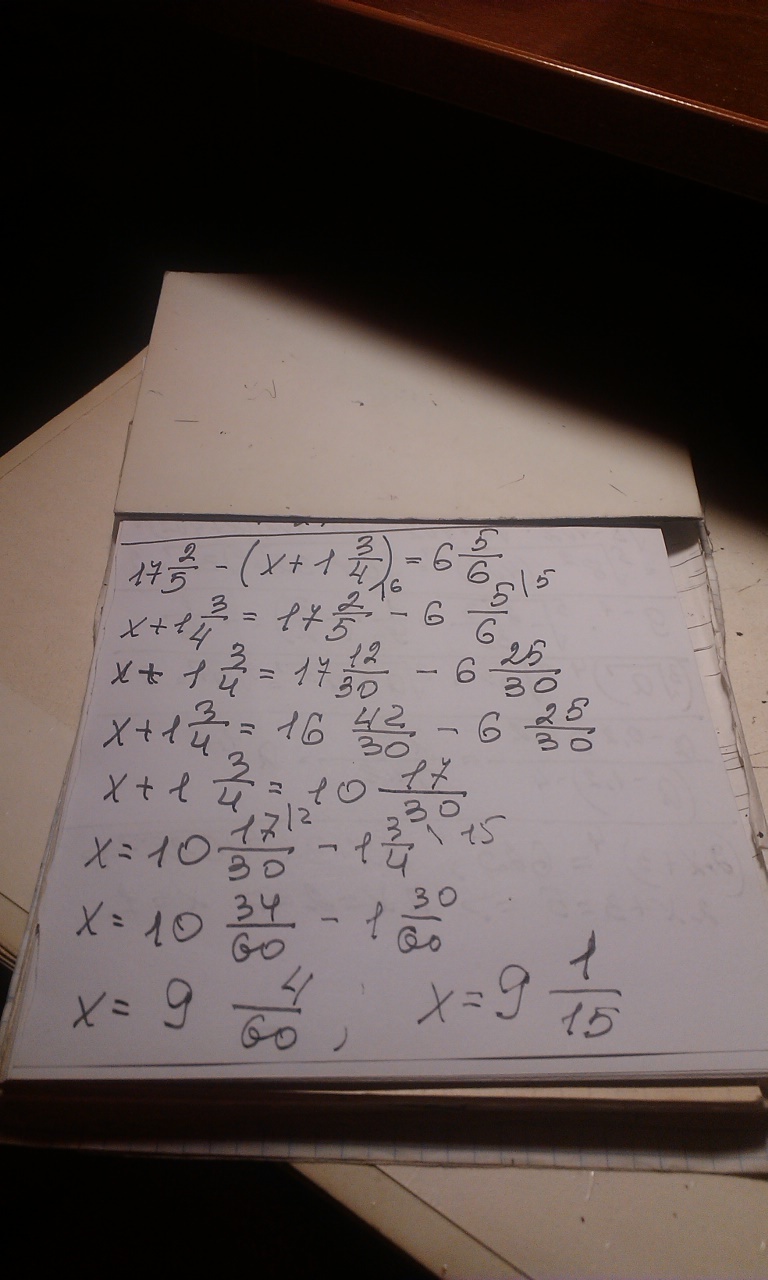 17 2/5 - (x + 1 3/4) = 6 5/6
x + 1 3/4 = 17 2/5 \6 - 6 5/6 \5
x + 1 3/4 = 17 12/30 - 6 25/30
x + 1 3/4 = 16 42/30 - 6 25/30
x + 1 3/4 = 10 17/30
x = 10 17/30 \2 - 1 3/4 \15
x = 10 34/60 - 1 30/60
x = 9 4/60 , x = 9 1/15